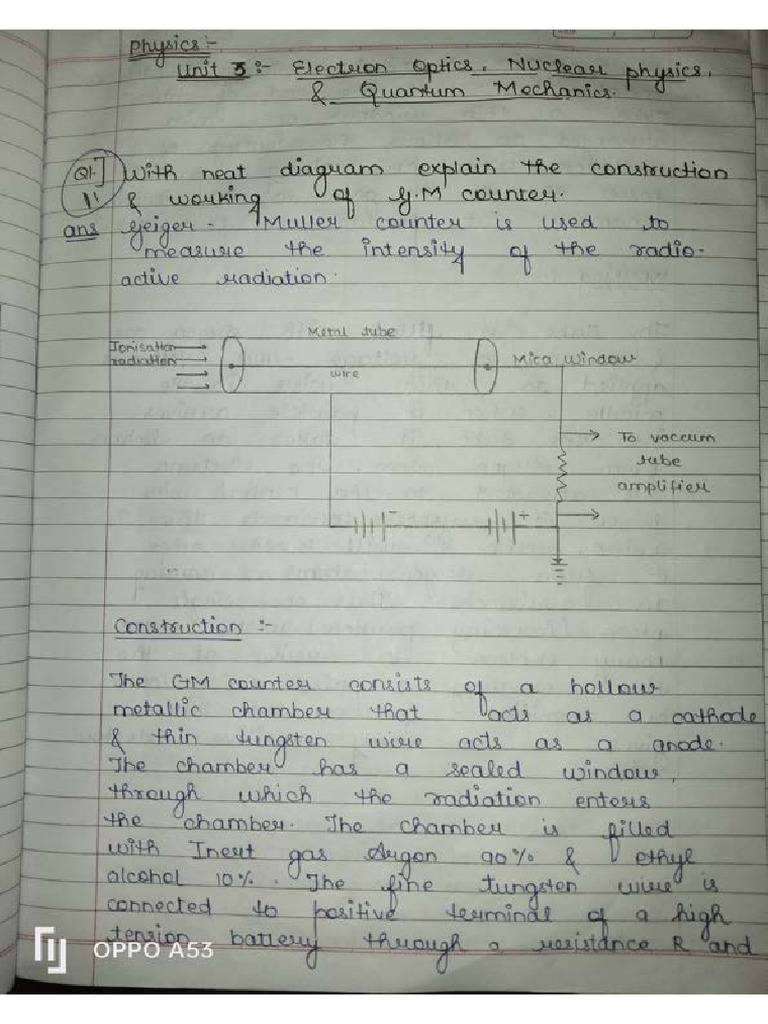 Physics:-
Unit 5:- Electron Optics, Nuclear physics,
& Quantum Mechanics.
Q1.] With neat diagram explain the construction
1' & working of G.M counter.
ans Geiger - Muller counter is used to
measure the intensity of the radio-
active radiation.
Metal tube
Ionisation
radiation
wire
Mica window
To vaccum
tube
amplifier
- +
Construction :-
The GM counter consists of a hollow
metallic chamber that acts as a cathode
& thin tungsten wire acts as a anode.
The chamber has a sealed window,
through which the radiation enters
the chamber. The chamber is filled
with Inert gas Argon 90% & ethyl
alcohol 10%. The fine tungsten wire is
connected to positive terminal of a high
tension battery through a resistance R and
OPPO A53